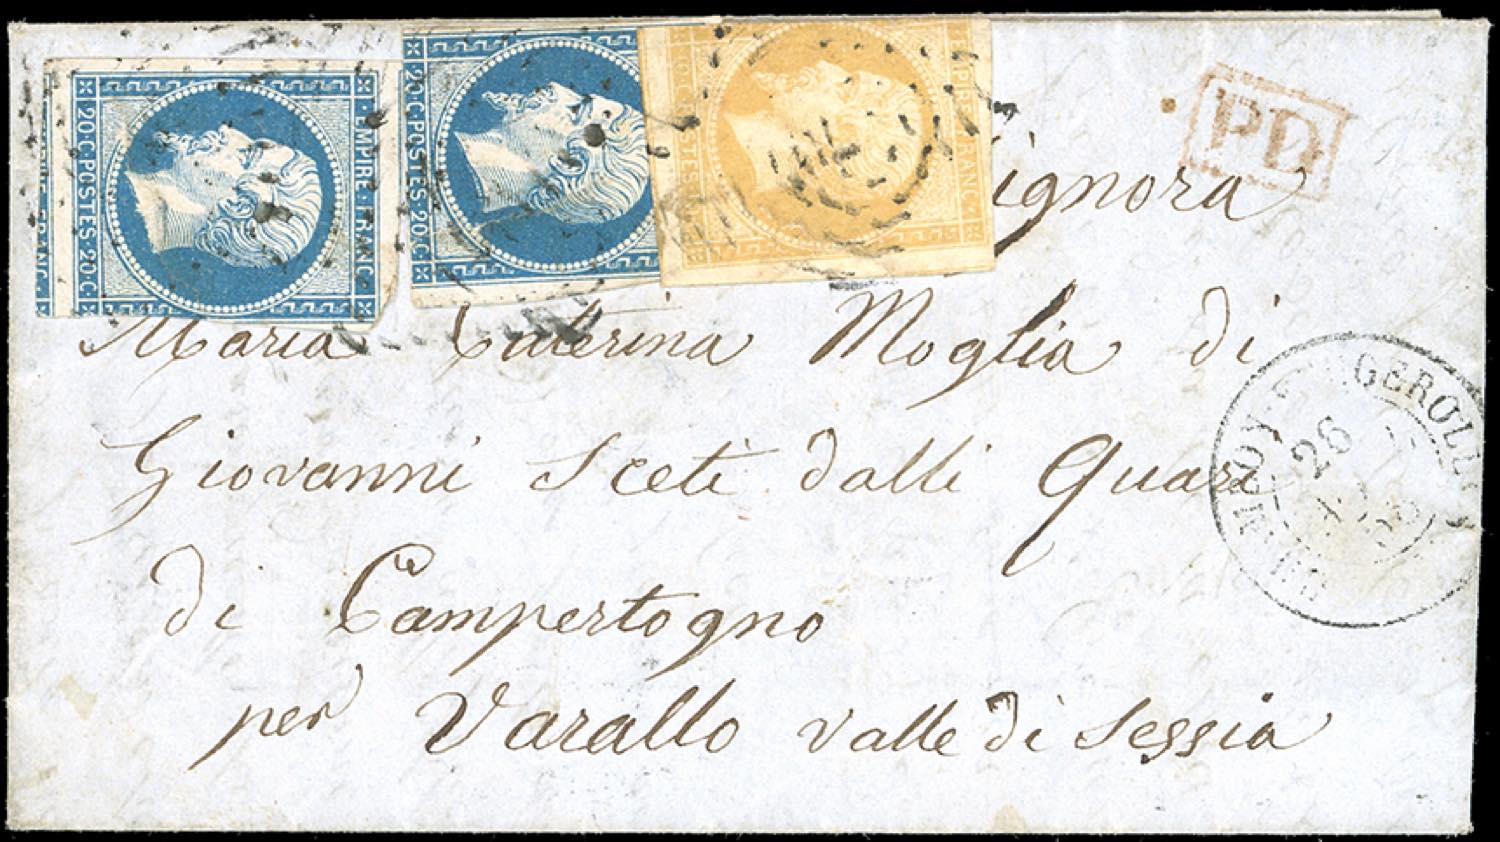 20·C·POSTES·20·C·
·EMPIRE·FRANC·
20·C·POSTES·20·C·
EMPIRE FRANC
PD
Signora
Maria Caterina Moglia di
Giovanni Sceti dalli Quare
di Campertogno
per Varallo valle di Sessia
26